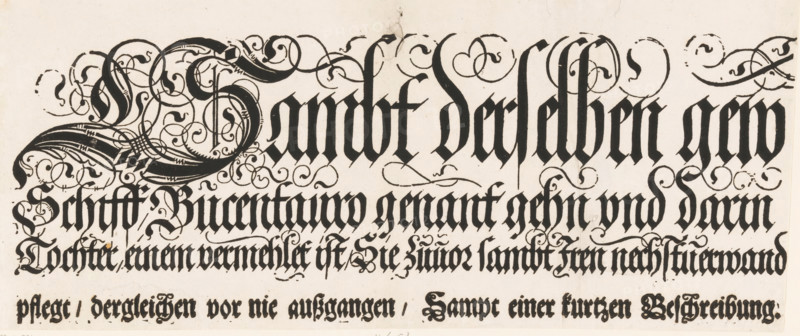 Sambt derselben gew
Schiff Bucentauro genant gehn vnd darin
Tochter/ einem vermehlet ist/ Sie zuuor sambt Iren nechstuerwand
pflegt / dergleichen vor nie außgangen / Sampt einer kurtzen Beschreibung: